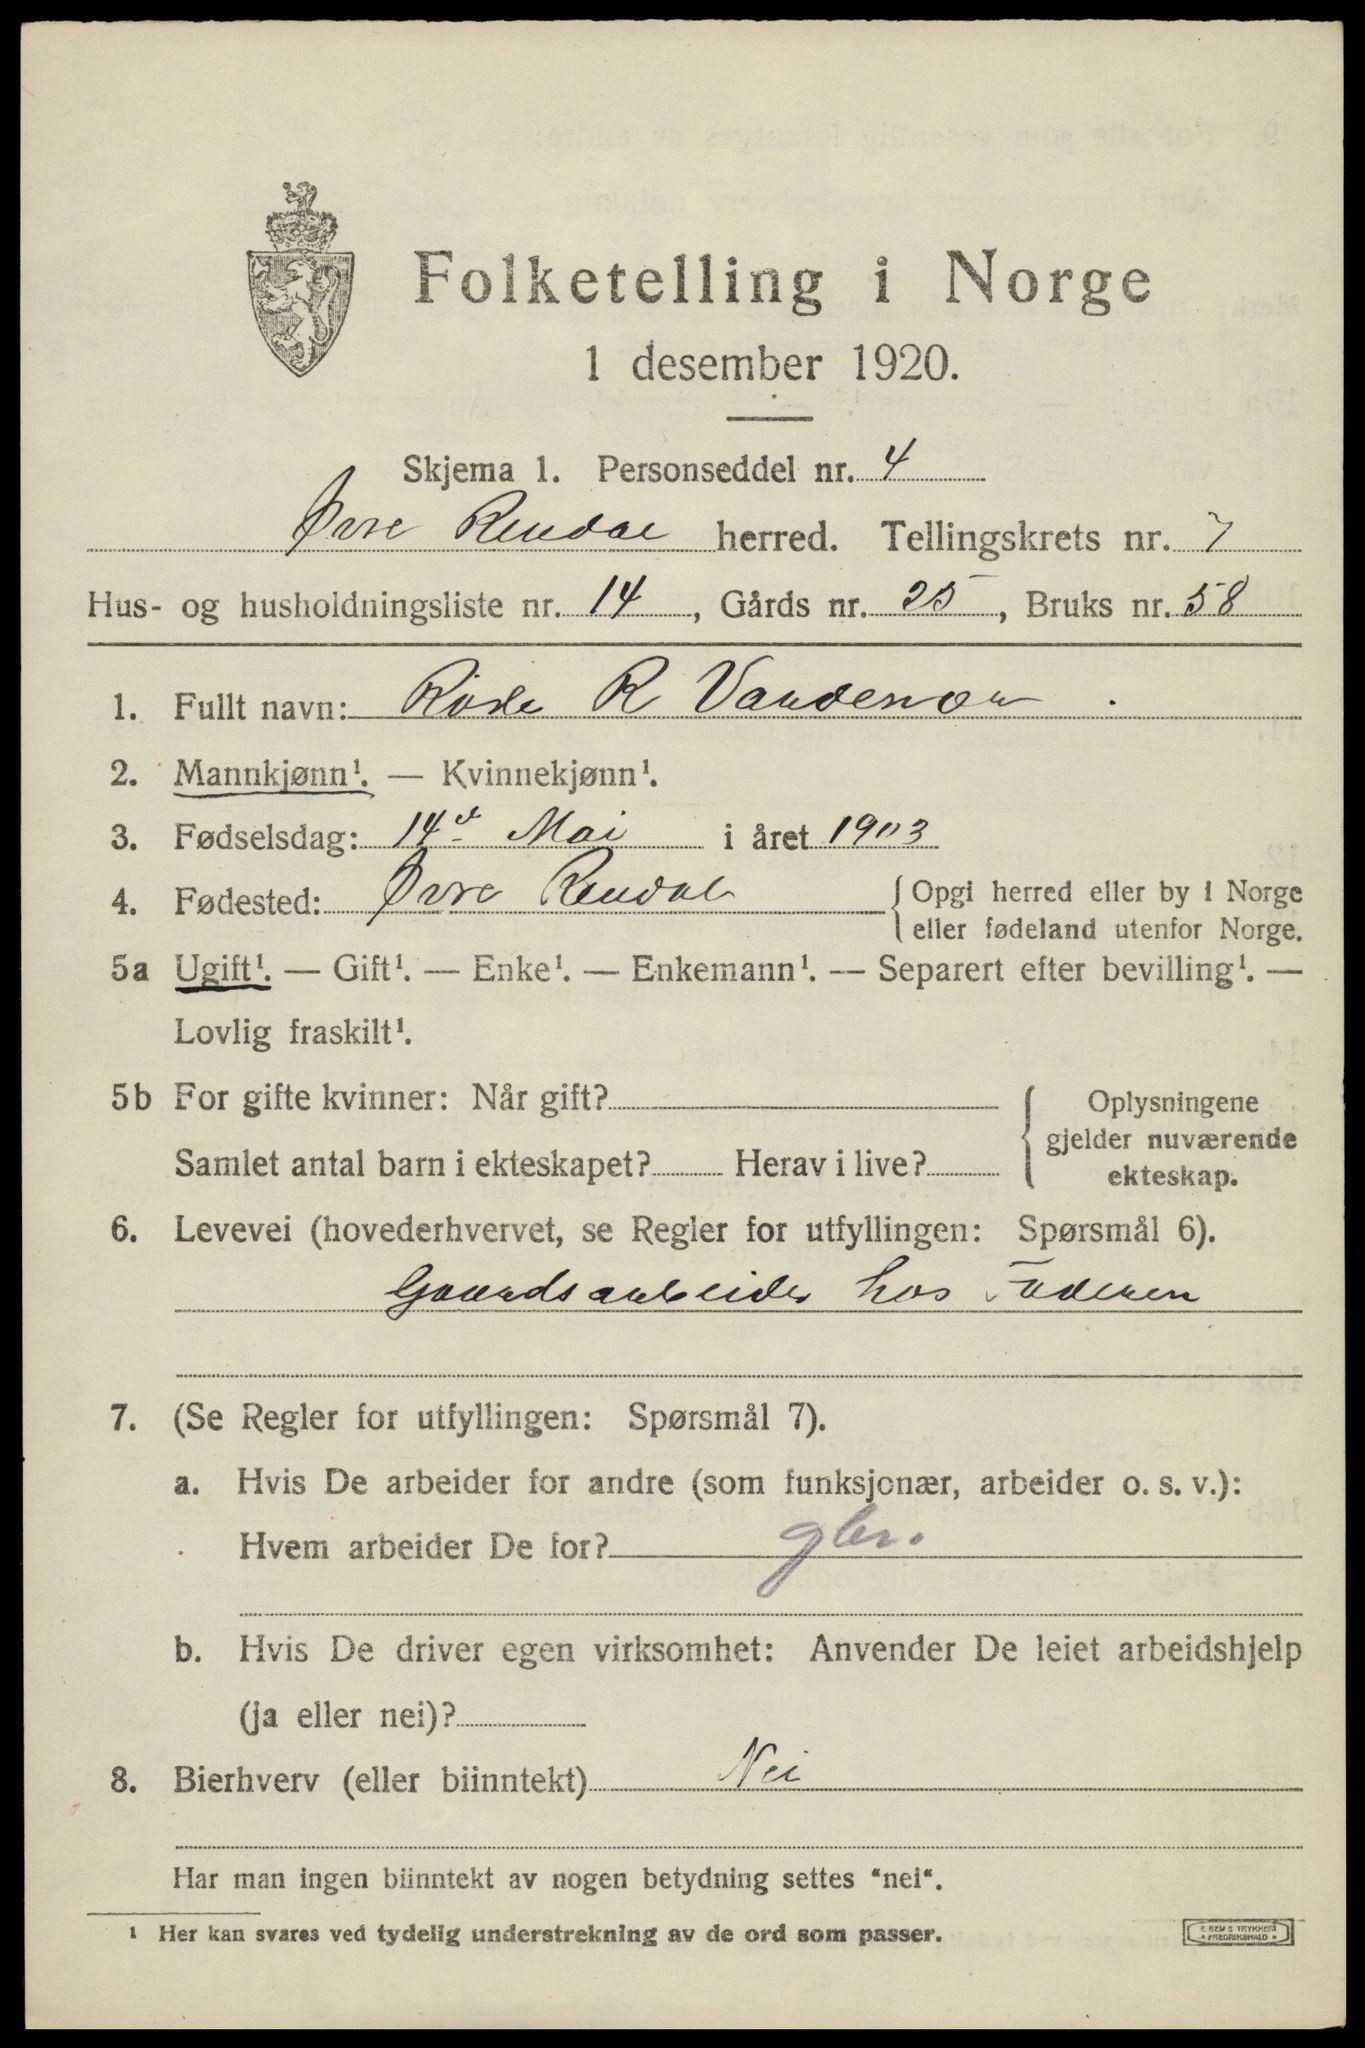 Folketelling i Norge
1 desember 1920.
Skjema 1. Personseddel nr. 4
Øvre Rendal herred. Tellingskrets nr. 7
Hus- og husholdningsliste nr. 14, Gårds nr. 25, Bruks nr. 58
1. Fullt navn: R
2. Mannkjønn¹. — Kvinnekjønn¹.
3. Fødselsdag: 14d Mai i året 1903
4. Fødested: Øvre Rendal { Opgi herred eller by i Norge
eller fødeland utenfor Norge.
5a Ugift¹. — Gift¹. — Enke¹. — Enkemann¹. — Separert efter bevilling¹. —
Lovlig fraskilt¹.
5b For gifte kvinner: Når gift?
Samlet antal barn i ekteskapet? Herav i live?
Oplysningene
gjelder nuværende
ekteskap.
6. Levevei (hovederhvervet, se Regler for utfyllingen: Spørsmål 6).
Gaardsarbeider hos Faderen
7. (Se Regler for utfyllingen: Spørsmål 7).
a. Hvis De arbeider for andre (som funksjonær, arbeider o. s. v.):
Hvem arbeider De for? gbr.
b. Hvis De driver egen virksomhet: Anvender De leiet arbeidshjelp
(ja eller nei)?
8. Bierhverv (eller biinntekt) Nei
Har man ingen biinntekt av nogen betydning settes "nei".
¹ Her kan svares ved tydelig understrekning av de ord som passer.
E. SEM'S TRYKKERI
FREDRIKSHALD